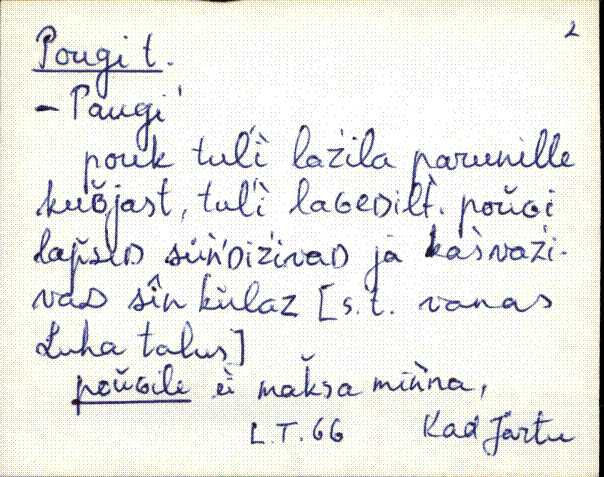 2
Pougi t.
– Paugi
pouk tuĺì lažila parunille
kuŏjast, tuĺì laGEDilt. poŭGi
lapsED sǜńDiživaD ja kasvaži-
vaD sîn külaz [s.t. vanas
Luha talus]
poŭGile ei maksa minna,
L.T. 66 Kad Jartu